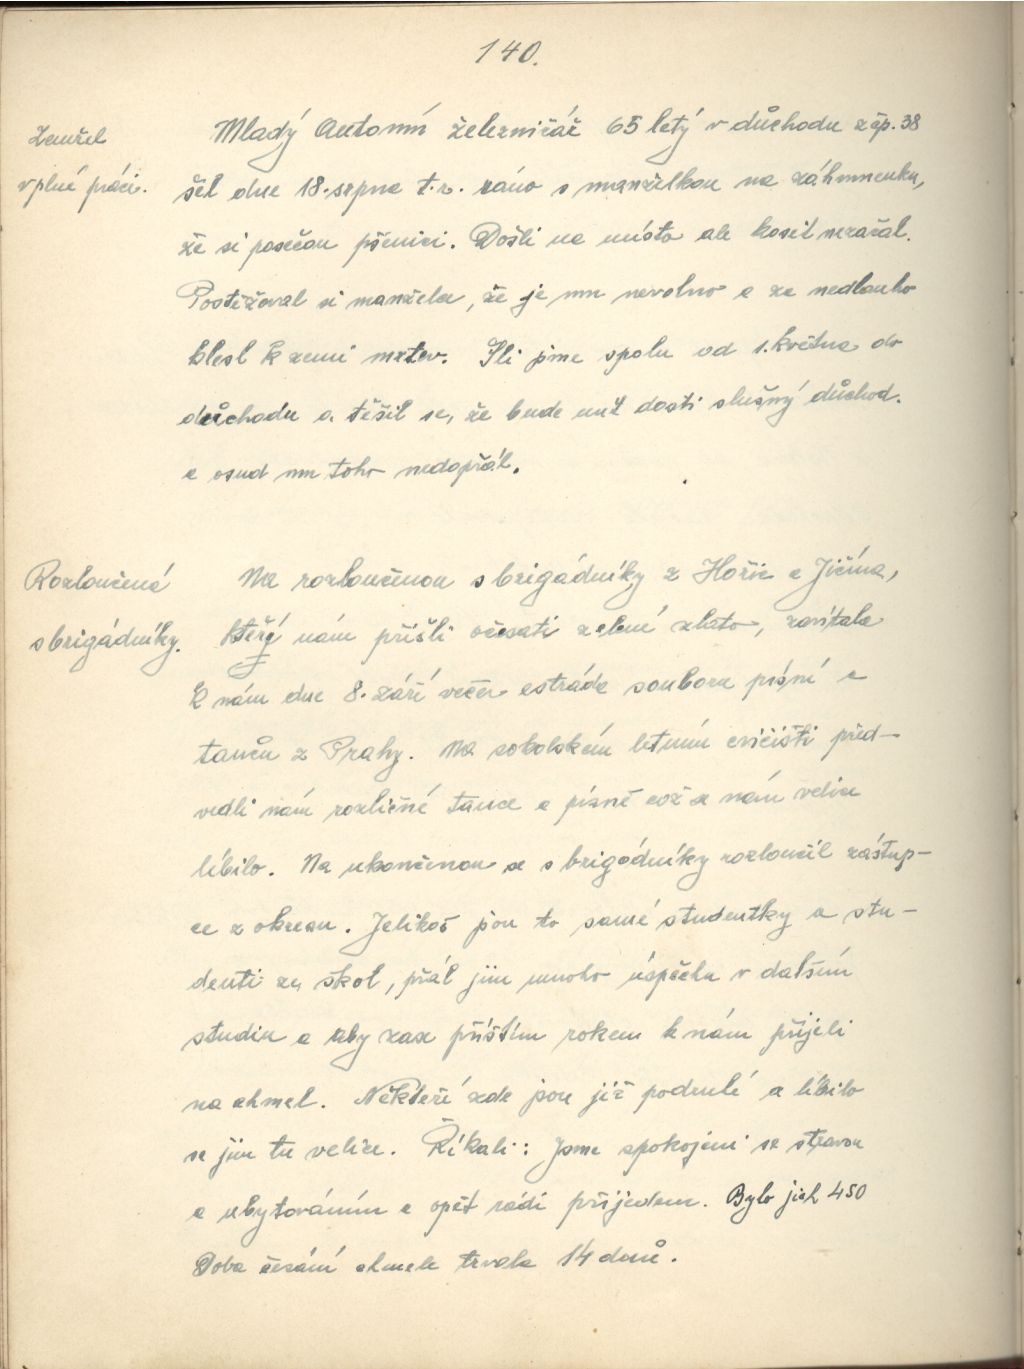 140.
Zemřel
v plné práci.
Mladý Antonín železničář 65 letý v důchodu z čp. 38
šel dne 18. srpna t.r. ráno s manželkou na záhumenku,
že si posečou pšenici. Došli na místo ale kosit nezačal.
Postěžoval si manželce, že je mu nevolno a za nedlouho
klesl k zemi mrtev. Šli jsme spolu od 1. května do
důchodu a těšil se, že bude mít dosti slušný důchod.
a osud mu toho nedopřál.
Rozloučená
s brigádníky.
Na rozloučenou s brigádníky z Hořic a Jičína,
kteří nám přišli očesati zelené zlato, zavítala
k nám dne 8. září večer estráda souboru písní a
tanců z Prahy. Na sokolském letním cvičišti před-
vedli nám rozličné tance a písně což se nám velice
líbilo. Na ukončenou se s brigádníky rozloučil zástup-
ce z okresu. Jelikož jsou to samé studentky a stu-
denti ze škol, přál jim mnoho úspěchu v dalším
studiu a aby zase příštím rokem k nám přijeli
na chmel. Někteří zde jsou již podruhé a líbilo
se jim tu velice. Říkali: Jsme spokojeni se stravou
a ubytováním a opět rádi přijedem. Bylo jich 450
Doba česání chmele trvala 14 dnů.